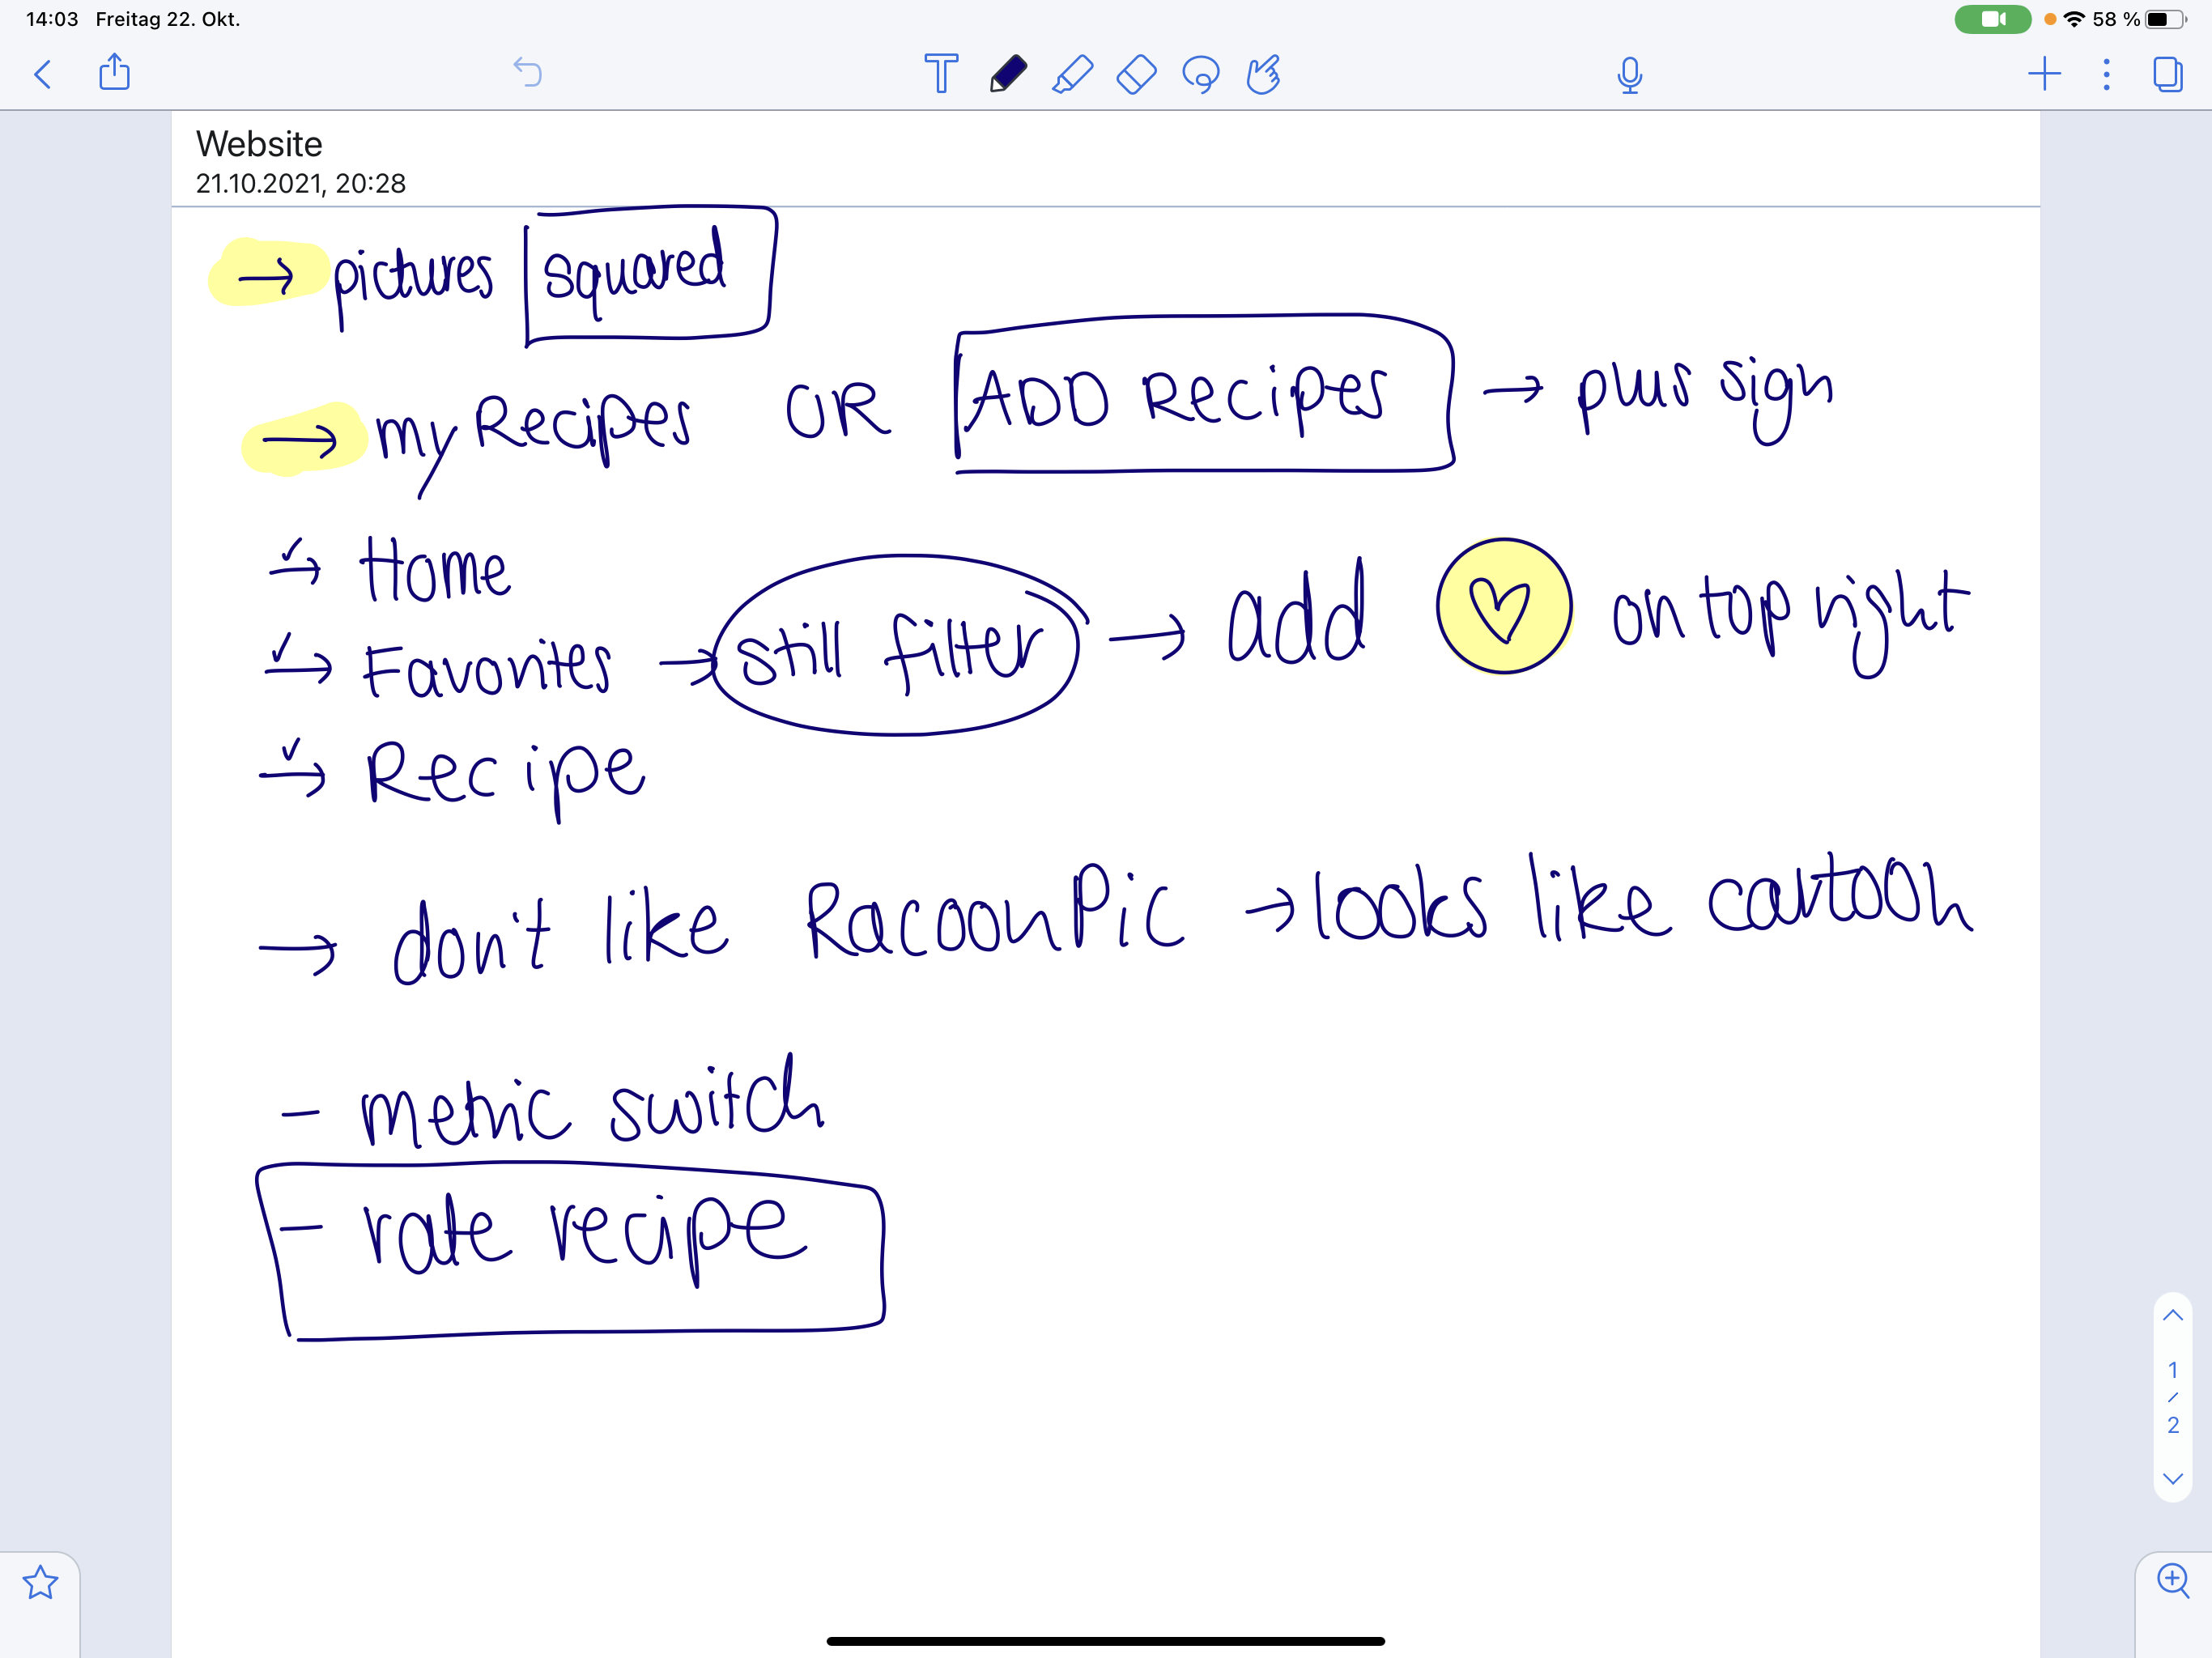 14:03 Freitag 22. Okt. 58 %
Website
21.10.2021, 20:28
→ pictures squared
→ my Recipes OR ADD Recipes → plus sign
✓→ Home
✓→ Favorites → still filter → add ♡ on top right
✓→ Recipe
→ don't like Racoon Pic → looks like cartoon
- metric switch
- rate recipe
1
/
2